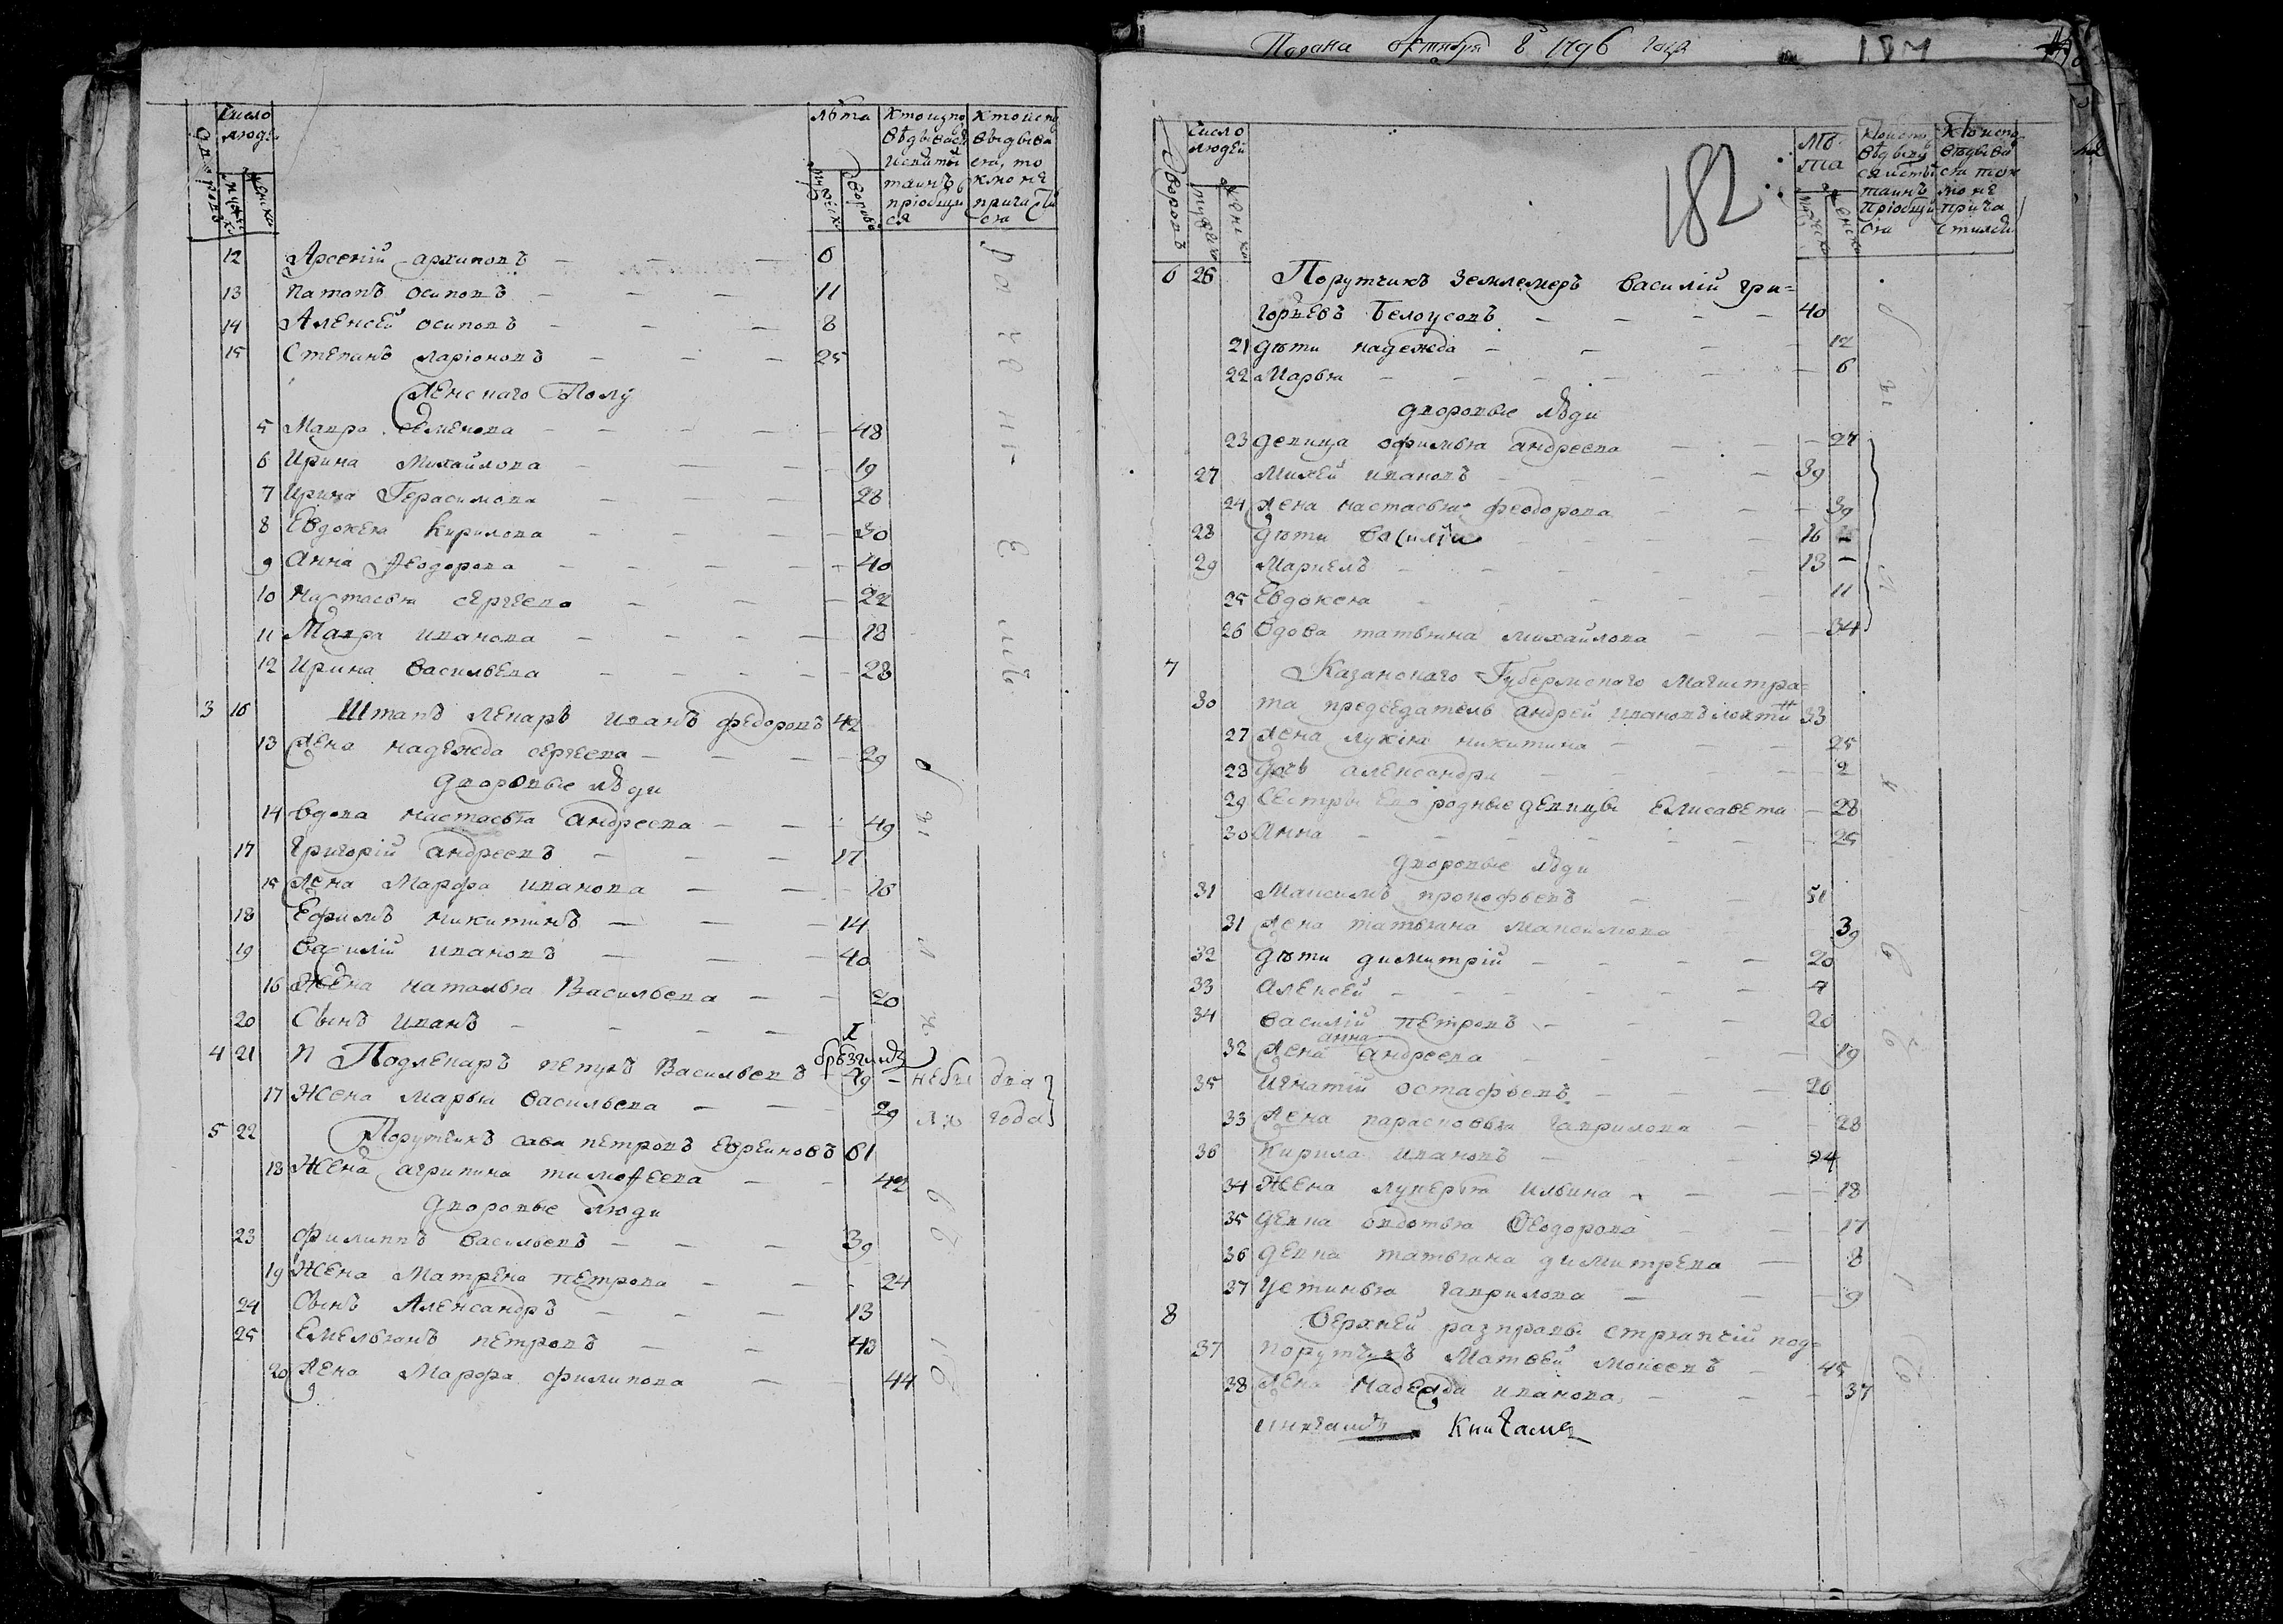 Число людей
лѣта
12 Арсений архиповъ — — — 6
13 Патапъ осиповъ — — — 11
14 Алексей осиповъ — — — 8
15 Степанъ ларионовъ — — — 25
Женскаго Полу
5 Мавра семенова — 48
6 Ирина Михаилова — 19
7 Ирина Герасимова — 28
8 Евдокея Кирилова — 30
9 Анна Ѳеодорова — 40
10 Настасья сергеева — 22
11 Мавра иванова — 18
12 Ирина васильева — 28
3 16 Штапъ лекарь иванъ федоровъ 42
13 Жена надежда сергеева — 29
дворовые люди
14 вдова настасья андреева — 49
17 григорій андреевъ — 17
15 Жена Марфа иванова — 16
18 Ефимъ никитинъ — 14
19 василій ивановъ — 40
16 Жена наталья Васильева — 20
20 Сынъ иванъ — 1
4 21 Подлекарь петръ Васильевъ 49 — небы два
17 Жена марья васильева — 29 ли года
5 22 Порутчикъ сава петровъ евреиновъ 61
18 Жена агрипина тимоѳеева — 42
дворовые люди
23 филиппъ васильевъ — 39
19 Жена Матрена петрова — 24
24 Сынъ Александръ — 13
25 Емельянъ петровъ — 43
20 Жена Марфа филипова — 44
Подана октября 8 1796 года
182
Число людей
лѣта
6 26 Порутчикъ землемеръ василій гри=
горьевъ Белоусовъ — 40
21 дѣти надежда — 12
22 Марья — 6
дворовые люди
23 девица офимья андреева — 27
27 Михей ивановъ — 39
24 Жена настасья феодорова — 39
28 дѣти василій — 16
29 Маркелъ — 13
25 Евдокея — 11
26 вдова татьяна михаилова — 34
7 Казанскаго Губернскаго магистра=
30 та председатель андрей ивановъ 33
27 Жена лукія никитина — 25
28 дочь александра — 2
29 Сестры ево родные девицы Елисавета — 28
30 Анна — 25
дворовые люди
31 Максимъ прокофьевъ 51
31 Жена татьяна мануилова 39
32 дѣти димитрій — 20
33 Алексей — 7
34 василій петровъ — 20
32 Жена анна андреева — 19
35 игнатій остафьевъ — 26
33 Жена парасковья гаврилова — 28
36 Кирила ивановъ — 24
34 Жена лукерья ильина — 18
35 девка авдотья Ѳеодорова 17
36 девка татьяна димитрева — 8
37 устинья гаврилова — 9
8 верхней расправы стряпчій под=
37 порутчикъ Матвей моисеевъ — 45
38 Жена надежда иванова — 37